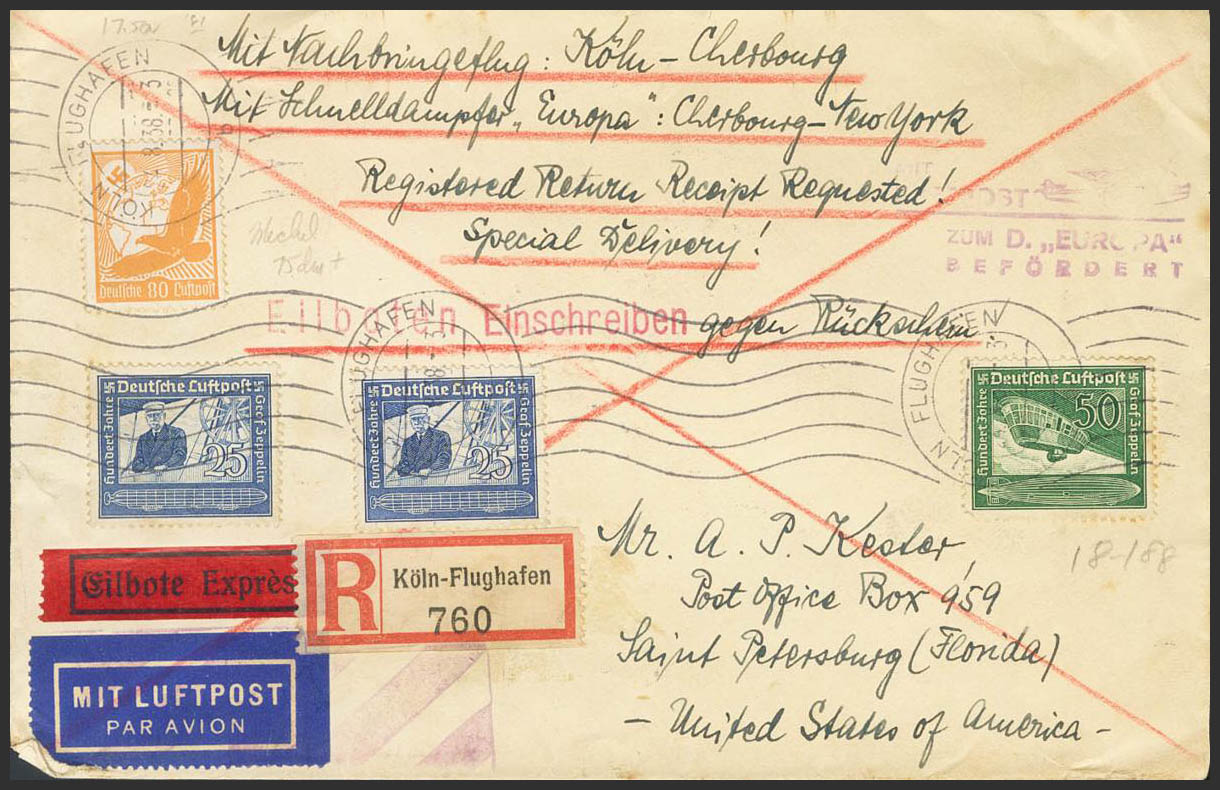 Mit Nachbringeflug: Köln - Cherbourg
Mit Schnelldampfer „Europa“: Cherbourg - New York
Registered Return Receipt Requested!
Special Delivery!
Eilboten Einschreiben gegen Rückschein
POST
ZUM D. „EUROPA“
BEFÖRDERT
KÖLN FLUGHAFEN
Deutsche 80 Luftpost
FLUGHAFEN
KÖLN FLUGHAFEN
Deutsche Luftpost
Hundert Jahre
Graf Zeppelin
25
Deutsche Luftpost
Hundert Jahre
Graf Zeppelin
25
Deutsche Luftpost
Hundert Jahre
Graf Zeppelin
50
18-188
Eilbote Exprès
R
Köln-Flughafen
760
MIT LUFTPOST
PAR AVION
Mr. A. P. Kester,
Post Office Box 959
Saint Petersburg (Florida)
- United States of America -